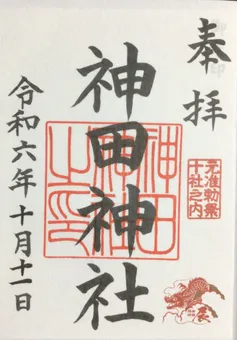 奉拝
元准勅祭
十社之内
神田神社
神田
神社
之印
辰
令和六年十月十一日